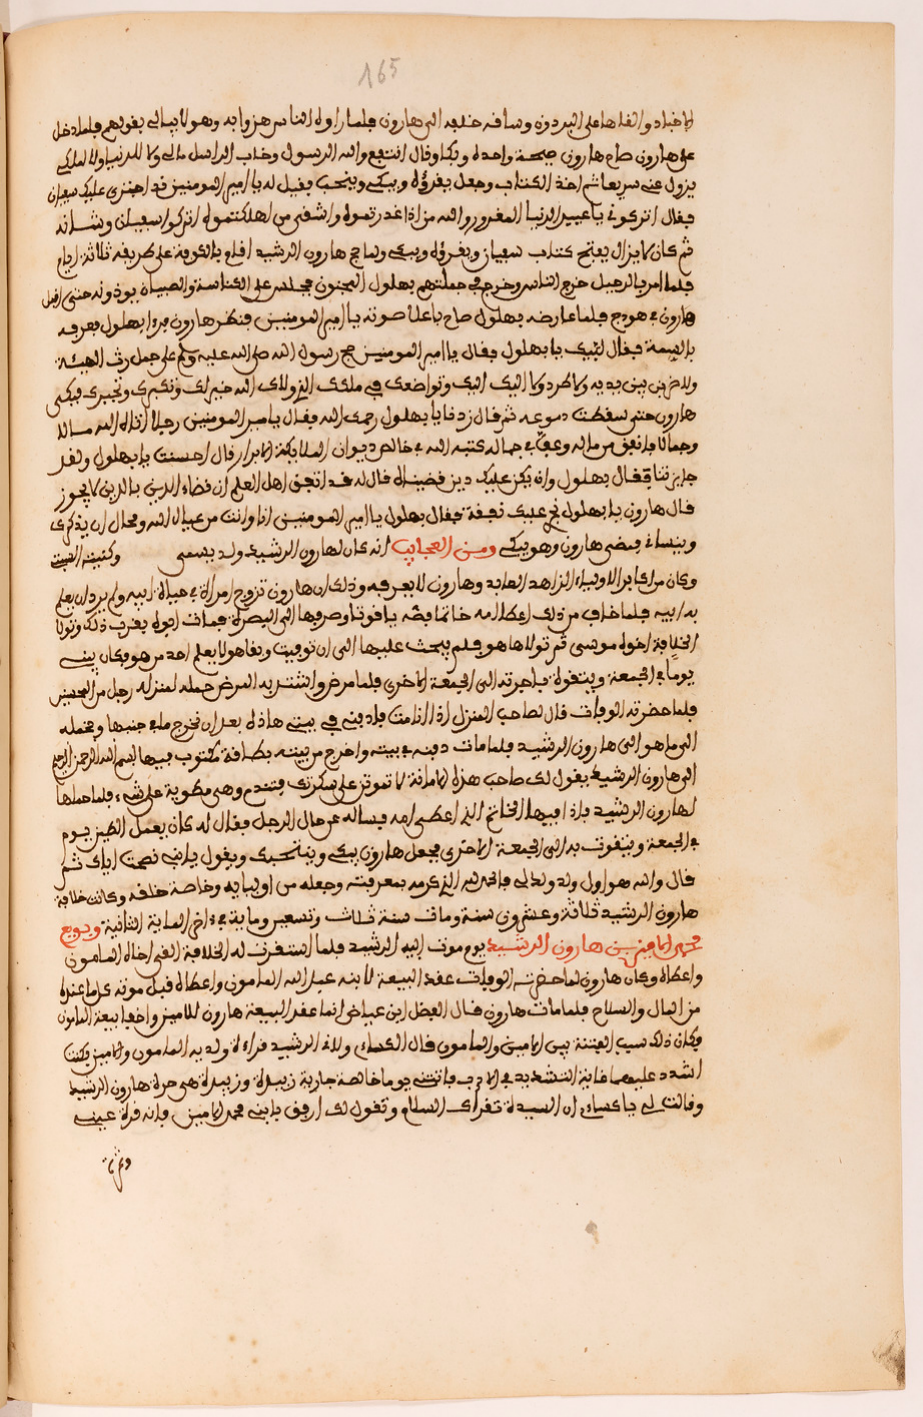 165
الاخباد والقاها على البردون وساقه خلفه الى هارون فلما راوه الناس هزوا به وهو لا يبالي بقولهم فلما دخل
على هارون صاح هارون صيحة واحدة وبكا وقال انتفع والله الرسول وخاب المرسل مالي وما للدنيا والملك
يزول عني سريعا ثم اخذ الكتاب وجعل يقرؤه ويبكي وينحب فقيل له يا امير المومنين قد اجترى عليك سفيان
فقال اتركوني يا عبيد الدنيا المغرور والله من اذا غدرتموه واشقى من اهلكتموه اتركوا سفيان وشانه
ثم كان لا يزال يفتح كتاب سفيان ويقرؤه ويبكي ولما حج هارون الرشيد اقام بالكوفة على طريقه ثلاثة ايام
فلما امر بالرحيل خرج الناس وخرج في جملتهم بهلول المجنون فجلس على الكناسة والصبيان يوذونه حتى اقبل
هارون في هودج فلما عارضه بهلول صاح باعلا صوته يا امير المومنين فنظر هارون فرءا بهلول فعرفه
فقال لبيك يا بهلول فقال يا امير المومنين حج رسول الله صلى الله عليه وسلم على جمل رث الهيئة
ولا ضرب بين يديه ولا طرد ولا اليك اليك وتواضعك في ملكك الذي ولاك الله خير لك وتكبرك وتجبرك فبكى
هارون حتى سقطت دموعه ثم قال زدنا يا بهلول رحمك الله فقال يامير المومنين رجلا اتاه الله مالا
وجمالا فانفق من ماله وعف في جماله كتبه الله في خالص ديوان الملايكة الابرار قال احسنت يا بهلول ولك
جايزتنا فقال بهلول وان يكن عليك دين قضيناه قال له قد اتفق اهل العلم ان قضاء الدين بالدين لا يجوز
قال هارون يا بهلول نجر عليك نفقة فقال بهلول يا امير المومنين انا وانت من عيال الله ومحال ان يذكرك
وينساني فمضى هارون وهو يبكي ومن العجايب انه كان لهارون الرشيد ولد يسمى وكنيته السبت
وكان من اكابر الاولياء الزاهد العابد وهارون لا يعرفه وذلك ان هارون تزوج امراة في حياة ابيه ولم يرد ان يعلم
به ابيه فلما خاف من ذلك اعطا امه خاتما فضة ياقوتا وصرفها الى البصرة فمات ابوه بقرب ذلك وتولا
الخلافة اخوه موسى ثم تولاها هو فلم يبحث عليها الى ان توفيت وبقا هو لا يعلم احد من هو فكان يبني
يوما في الجمعة وينفق باجرته الى الجمعة الاخرى فلما مرض واشتد به المرض حمله لمنزله رجل من المحبين
فلما حضرته الوفات قال لصاحب المنزل اذا انا مت فادفني في بيتي هاذه بعد ان تخرج ما في جنبها وتحمله
الى ماهو الى هارون الرشيد فلما مات دفنه في بيته واخرج من بيته بطاقة مكتوب فيها بسم الله الرحمن الرحيم
الى هارون الرشيد يقول لك صاحب هذه الامانة لا تموتن على سكرتك فتندم وهي مطوية على شيء فلما حملها
لهارون الرشيد فاذا فيها الخاتم الذي اعطى امه فساله عن حال الرجل فقال له كان يعمل الطين يوم
في الجمعة ويتقوت به الى الجمعة الاخرى فجعل هارون يبكي وينتحب ويقول يا بني نصحت اباك ثم
قال والله هو اول ولد ولد لي فالحمد لله الذي كرمه بمعرفته وجعله من اوليايه وخاصة خلقه وكانت خلافة
هارون الرشيد ثلاثة وعشرون سنة ومات سنة ثلاث وتسعين وماية في اخر الماية الثانية وبويع
محمد الامين بن هارون الرشيد يوم موت ابيه الرشيد فلما استقرت له الخلافة القى اخاه المامون
واعطاه وكان هارون لما حضرته الوفات عقد البيعة لابنه عبد الله المامون واعطاه قبل موته كل ما عنده
من المال والسلاح فلما مات هارون قال الفضل ابن عياض انما عقد البيعة هارون للامين واخفا بيعة المامون
فكان ذلك سبب الفتنة بين الامين والمامون قال الكساي ولاني الرشيد قراءة ولديه المامون والامين فكنت
اشدد عليهما غاية التشديد في الادب فاتتني يوما خالصة جارية زبيدة وزبيدة هي حرة هارون الرشيد
وقالت لي يا كساي ان السيدة تقراك السلام وتقول لك ارفق بابني محمد الامين فانه قرة عيني